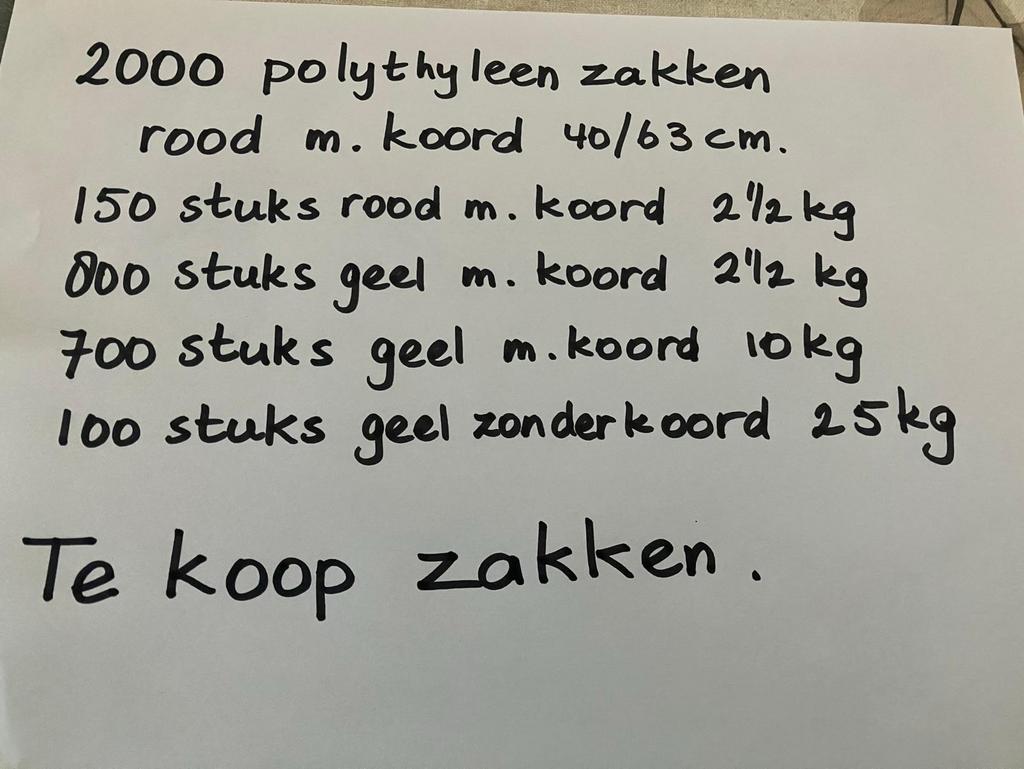 2000 polythyleen zakken
rood m. koord 40/63 cm.
150 stuks rood m. koord 2 1/2 kg
800 stuks geel m. koord 2 1/2 kg
700 stuks geel m. koord 10 kg
100 stuks geel zonder koord 25 kg
Te koop zakken.